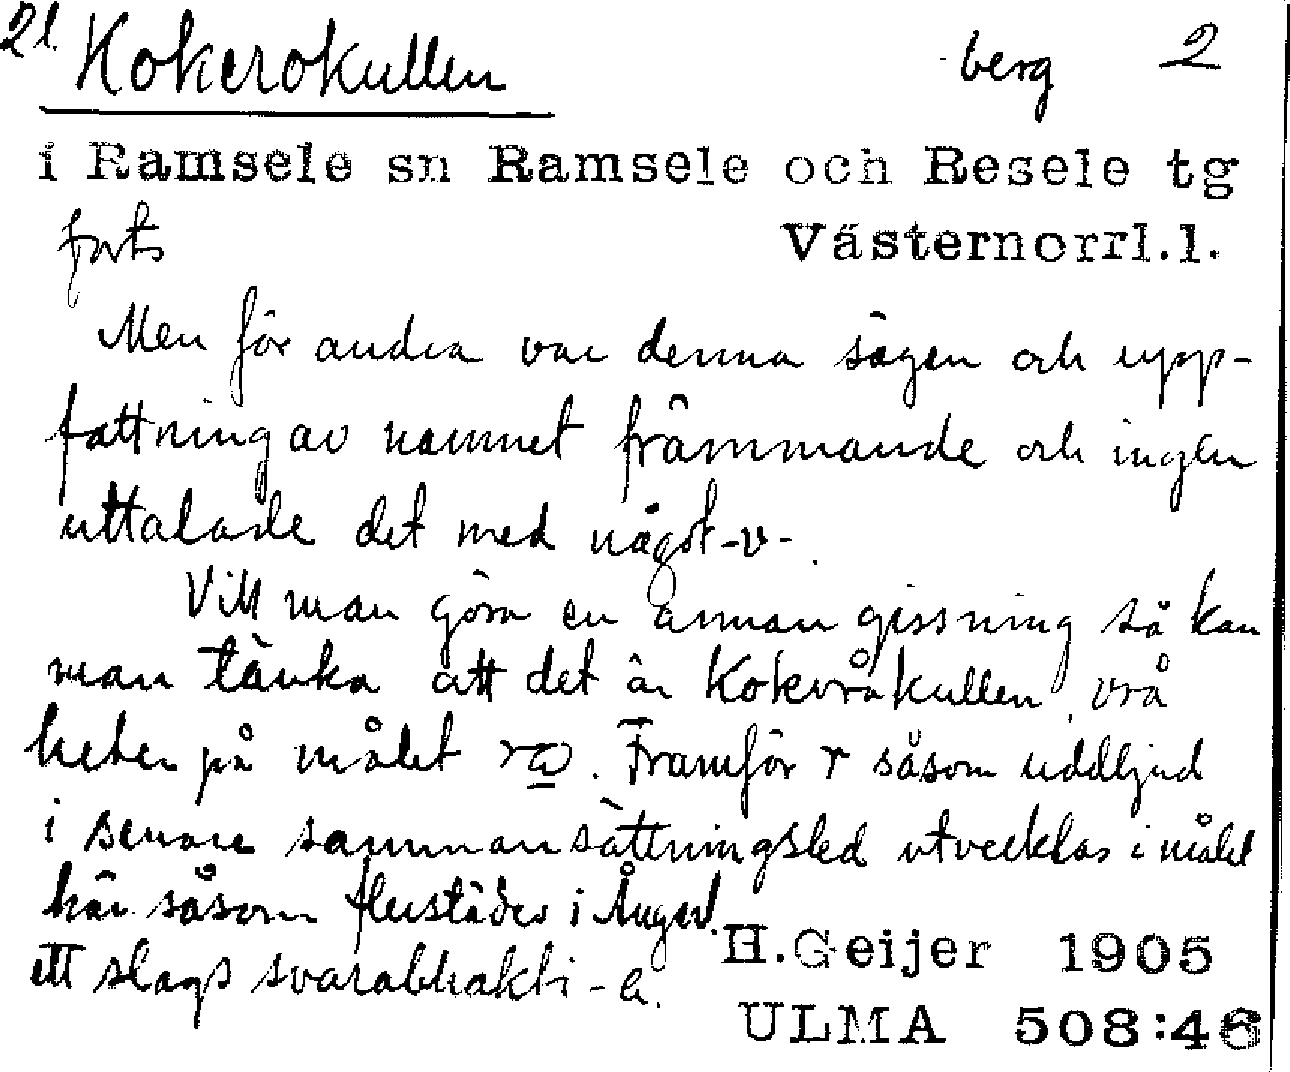 21 Kokerokullen berg 2
i Ramsele sn Ramsele och Resele tg
forts Västernorrl.l.
Men för andra var denna sägen och upp-
fattning av namnet främmande och ingen
uttalade det med något -v-.
Vill man göra en annan gissning så kan
man tänka att det är Kokvråkullen, vrå
heter på målet . Framför r såsom uddljud
i senare sammansättningsled utvecklas i målet
här såsom flerstädes i Ångerl.
ett slags svarabhakti -e.
H.Geijer 1905
ULMA 508:46